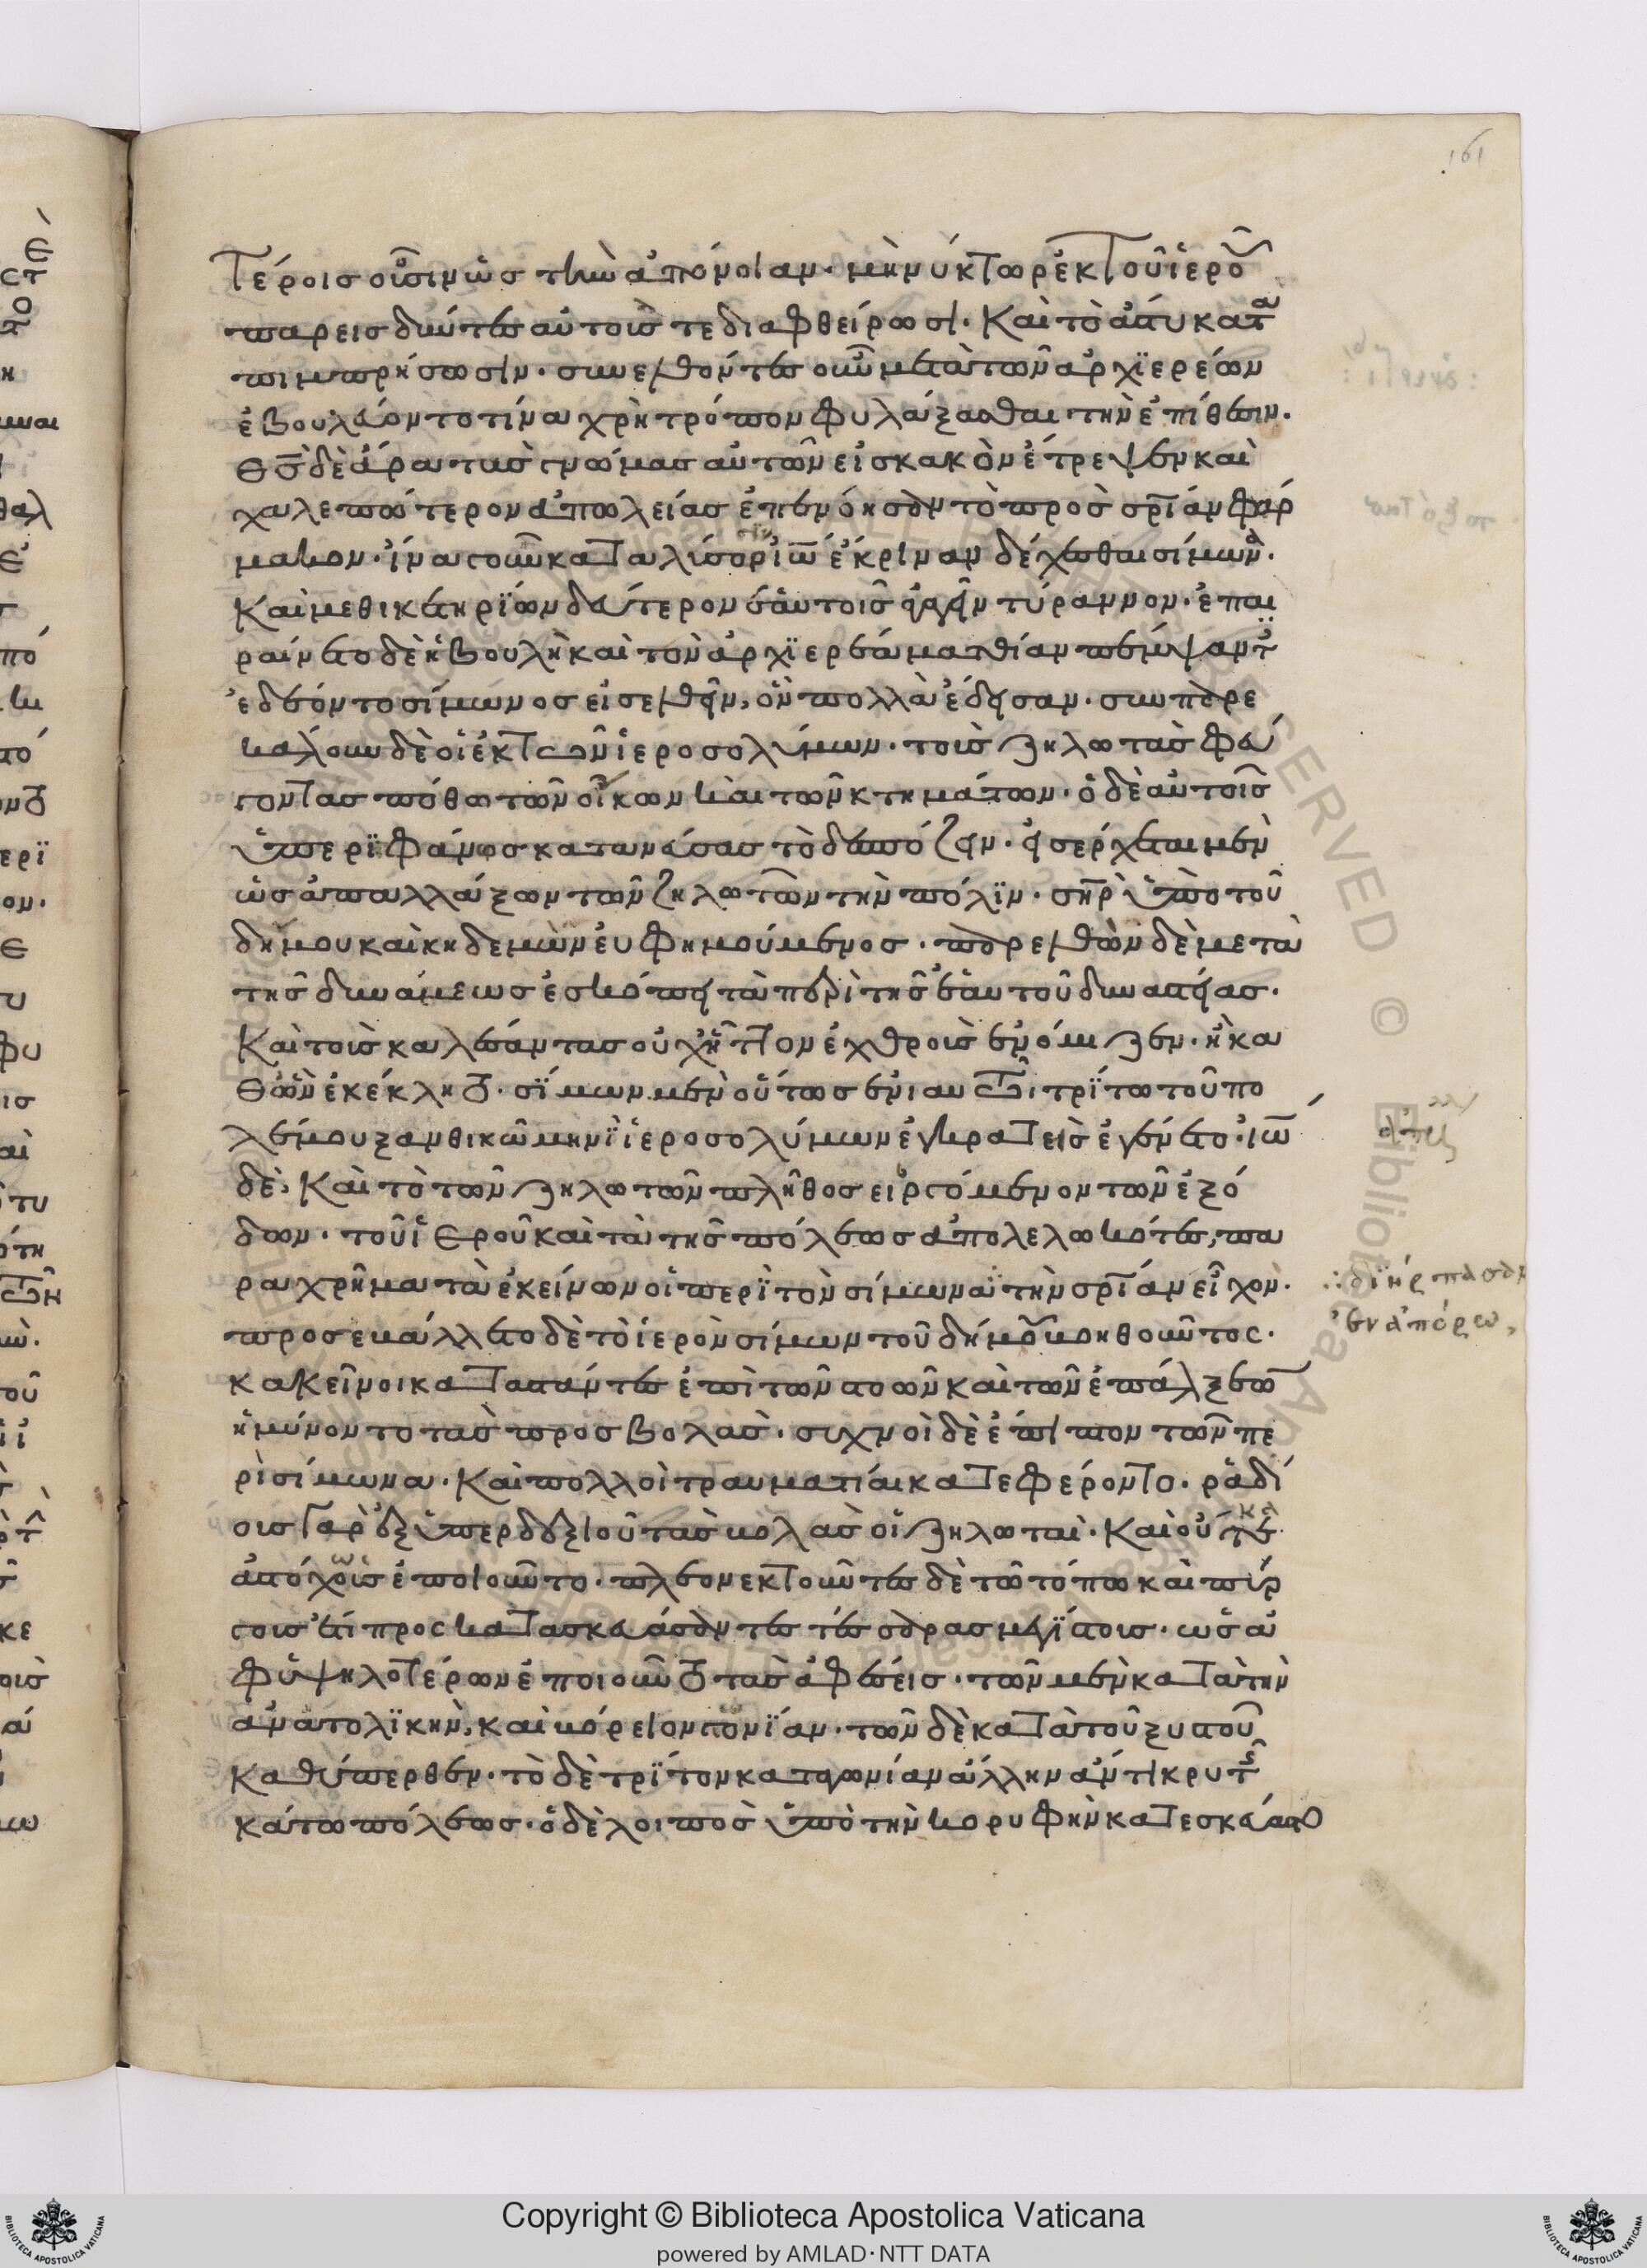 τέροις οὖσιν ὡς τὴν ἀπόνοιαν· μὴ νύκτωρ ἐκ τοῦ ἱεροῦ
παρεισδύντες αὐτοὺς τε διαφθείρωσι. καὶ τὸ ἄστυ κατα
πιμπρήσωσιν. συνελθόντες οὖν μετὰ τῶν ἀρχϊερέων
ἐβουλεύοντο τίνα χρὴ τρόπον φυλάξασθαι τὴν ἐπίθεσιν.
θς δὲ ἄρα τὰς γνώμας αὐτῶν εἰς κακὸν ἔτρεψεν καὶ
χαλεπώτερον ἀπωλείας ἐπενόησαν τὸ πρὸς σρίαν φάρ
μακον· ἵνα γοῦν καταλύσωσιν ἰω ἔκριναν δέχεσθαι σίμωνα.
καὶ μεθ ικετηρϊῶν δεύτερον ἑαυτοῖς εἰσαγαγεῖν τύραννον. ἐπαι
ραίνετο δὲ ἡ βουλὴ καὶ τὸν ἀρχϊερέα ματθίαν πέμψαντες
ἐδέοντο σίμωνος εἰσελθεῖν, ὃν πολλὰ ἔδεισαν. συνπαρε
κάλουν δὲ οἱ ἐκ τῶν ἱεροσολύμων. τοὺς ζηλωτὰς φεύ
γοντας πόθω τῶν οἴκων καὶ τῶν κτημάτων. ὁ δὲ αὐτοῖς
ὑπερϊφάνως κατανεύσας τὸ δεσπόζειν. εἰσέρχεται μὲν
ὡς ἀπαλλάξων τῶν ζηλωτῶν τὴν πόλϊν. σηρ ὑπὸ τοῦ
δήμου καὶ κηδεμὼν εὐφημούμενος. παρελθὼν δὲ μετὰ
τῆς δυνάμεως ἐσκόπει τὰ περὶ τῆς ἑαυτοῦ δυναστείας.
καὶ τοὺς καλέσαντας οὐχ ἧττον ἐχθροὺς ἐνόμιζεν. ἢ κα
θ ὧν ἐκέκλητο. σΐμων μὲν οὕτως ἐνιαυτῶ τρϊτω τοῦ πο
λέμου ξανθικῶ μηνῒ ἱεροσολύμων ἐγκρατεὶς ἐγένετο. ἰω
δὲ. καὶ τὸ τῶν ζηλωτῶν πλῆθος εἰργόμενον τῶν ἐξό
δων. τοῦ ἱεροῦ καὶ τὰ τῆς πόλεως ἀπολελωκότες, πα
ραχρῆμα τὰ ἐκείνων οἱ περῒ τὸν σίμωνα τὴν σρίαν εἶχον.
προσεβάλλετο δὲ τὸ ἱερὸν σίμων τοῦ δήμου βοηθοῦντος.
κακεῖνοι καταστάντες ἐπὶ τῶν στοῶν καὶ τῶν ἐπάλξεων
ἠμύνοντο τὰς προσβολάς. συχνοὶ δὲ ἔπιπτον τῶν πε
ρὶ σίμωνα. καὶ πολλοὶ τραυματίαι κατεφέροντο. ῥαδί
οις γὰρ ἐξ ὑπερδεξιοῦ τὰς βολὰς οἱ ζηλωταὶ. καὶ οὐκ
ἀστόχους ἐποιοῦντο. πλεονεκτοῦντες δὲ τῶ τόπω καὶ πύρ
γους ἔτι προσκατασκευάσαντες τέσσαρας μεγΐστοις. ὡς ἀ
φ ὑψηλοτέρων ἐποιοῦντο τὰς ἀφέσεις. τῶν μὲν κατὰ τὴν
ἀνατολϊκὴν, καὶ βόρειον γονΐαν. τῶν δὲ κατὰ τοῦ ξυστοῦ
καθύπερθεν. τὸ δὲ τρΐτον κατα γωνίαν ἄλλην ἄντικρυ τῆς
κάτω πόλεως. ὁ δὲ λοιπὸς ὑπὸ τὴν κορυφὴν κατεσκεύαστο
διήρπασαν
ἐν ἀπόρω,
161
Copyright © Biblioteca Apostolica Vaticana
powered by AMLAD·NTT DATA